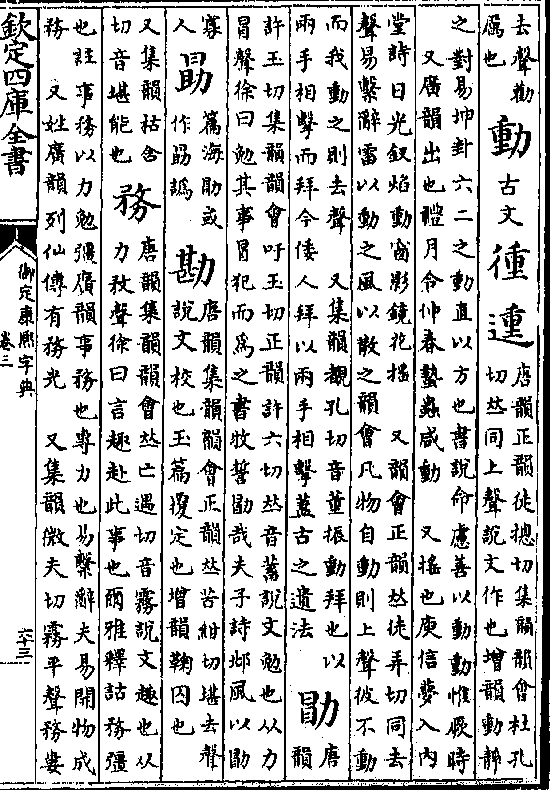 去聲勸
厲也
動 古文
唐韻正韻徒摠切集韻韻會杜孔
切𠀤同上聲說文作也增韻動靜
之對易坤卦六二之動直以方也書說命慮善以動動惟厥時
又廣韻出也禮月令仲春蟄蟲咸動 又搖也庾信夢入内
堂詩日光釵焰動窗影鏡花搖 又韻會正韻𠀤徒弄切同去
聲易繫辭雷以動之風以散之韻會凡物自動則上聲彼不動
而我動之則去聲 又集韻覩孔切音董振動拜也以
兩手相擊而拜今倭人拜以兩手相擊蓋古之遺法
勖
唐
韻
許玉切集韻韻會吁玉切正韻許六切𠀤音蓄說文勉也从力
冒聲徐曰勉其事冒犯而為之書牧誓勖哉夫子詩邶風以勖
寡
人
勗
篇海勖或
作勗譌
勘
唐韻集韻韻會正韻𠀤苦紺切堪去聲
說文校也玉篇覆定也增韻鞠囚也
又集韻枯含
切音堪能也
務
唐韻集韻韻會𠀤亡遇切音霧說文趣也从
力敄聲徐曰言趣赴此事也爾雅釋詁務彊
也註事務以力勉彊廣韻事務也專力也易繫辭夫易開物成
務 又姓廣韻列仙傳有務光 又集韻微夫切霧平聲務婁
欽定四庫全書
御定康熙字典
卷三
六十三